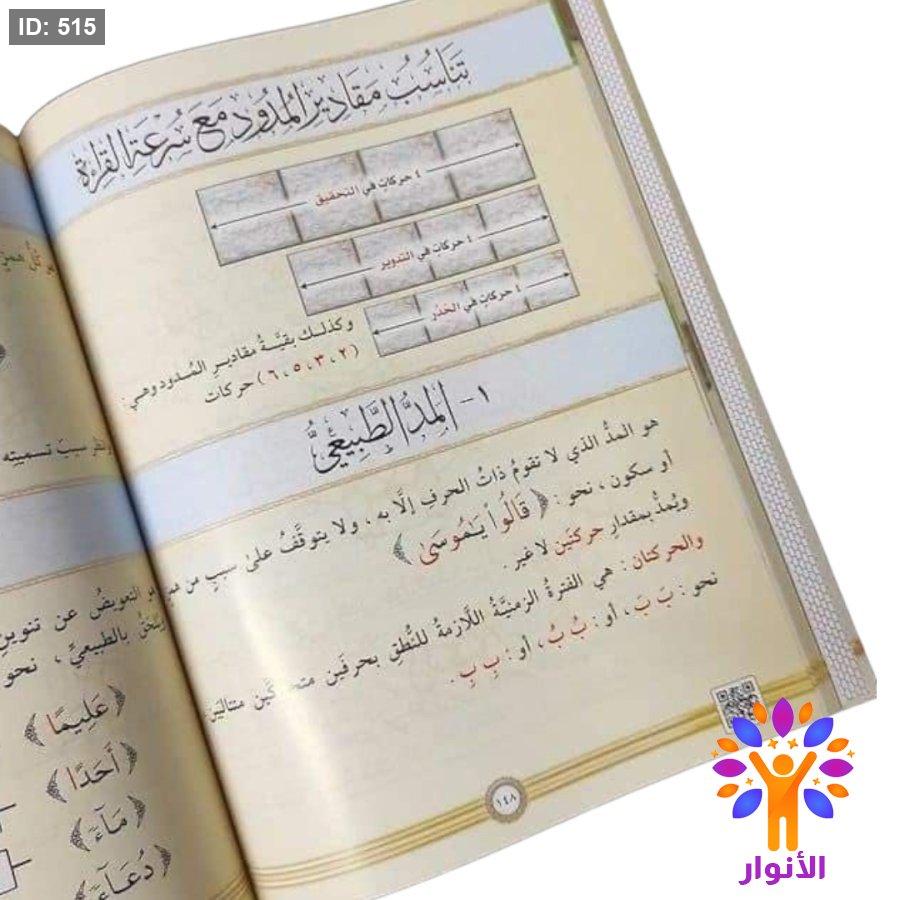 ID: 515
تَنَاسُبُ مَقَادِيرِ المُدُودِ مَعَ سُرْعَةِ القِرَاءَةِ
٤ حركات في التحقيق
٤ حركات في التدوير
٤ حركات في الحَدْر
وكذلك بقيَّةُ مقاديرِ المُدود وهي :
(٢ ، ٣ ، ٥ ، ٦) حركات
١- المَدُّ الطَّبِيعِيُّ
هو المدُّ الذي لا تقومُ ذاتُ الحرفِ إلَّا به ، ولا يتوقَّفُ علىٰ سببٍ من همزٍ
أو سكون ، نحو : ﴿ قَالُوا۟ يَٰمُوسَىٰٓ ﴾
ويُمدُّ بمقدارِ حركتَين لا غير .
والحركتان : هي الفترةُ الزمنيَّةُ اللَّازمةُ للنُّطقِ بحرفَين متحركَين متتاليَين
نحو : بَ بَ ، أو : بُ بُ ، أو : بِ بِ .
١٤٨
سببَ تسميتِه
التعويضُ عن تنوينِ
بالطبيعيِّ ، نحو
﴿ عَلِيمًا ﴾
﴿ أَحَدًا ﴾
﴿ مَآءً ﴾
﴿ دُعَآءً ﴾
الأنوار